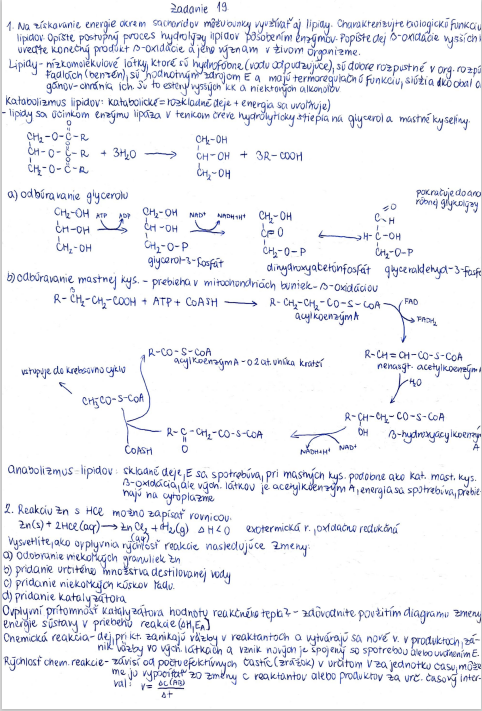 Zadanie 19
1. Na získavanie energie okrem sacharidov môžu bunky využívať aj lipidy. Charakterizujte biologickú funkciu
lipidov. Opíšte postupný proces hydrolýzy lipidov pôsobením enzýmov. Popíšte dej β-oxidácie vyšších k
uveďte konečný produkt β-oxidácie a jeho význam v živom organizme.
Lipidy - nízkomolekulové látky, ktoré sú hydrofóbne (vodu odpudzujúce), sú dobre rozpustné v org. rozpú
ťadlách (benzén), sú hodnotným zdrojom E a majú termoregulačnú funkciu, slúžia ako obal o
gánov - chránia ich. Sú to estery vyšších kk a niektorých alkoholov
Katabolizmus lipidov: katabolické = rozkladné deje + energia sa uvoľňuje)
- lipidy sa účinkom enzýmu lipáza v tenkom čreve hydrolyticky štiepia na glycerol a mastné kyseliny.
CH₂-O-C-R CH₂-OH
CH-O-C-R + 3H₂O → CH-OH + 3R-COOH
CH₂-O-C-R CH₂-OH
a) odbúravanie glycerolu
pokračuje do ana
róbnej glykolýzy
CH₂-OH ATP ADP CH₂-OH NAD⁺ NADH+H⁺ CH₂-OH C=O H
CH-OH CH-OH C=O H-C-OH
CH₂-OH CH₂-O-P CH₂-O-P CH₂-O-P
glycerol-3-fosfát dihydroxyacetónfosfát glyceraldehyd-3-fosfá
b) odbúravanie mastnej kys. - prebieha v mitochondriách buniek - β-oxidáciou
R-CH₂-CH₂-COOH + ATP + CoASH → R-CH₂-CH₂-CO-S-CoA FAD
acylkoenzým A FADH₂
R-CO-S-CoA R-CH=CH-CO-S-CoA
acylkoenzým A - o 2 at. uhlíka kratší
vstupuje do krebsovho cyklu
H₂O
CH₃CO-S-CoA
R-CH-CH₂-CO-S-CoA
OH
R-C-CH₂-CO-S-CoA
O
β-hydroxyacylkoenzým
A
CoASH NADH+H⁺ NAD⁺
Anabolizmus lipidov: skladné deje, E sa spotrebúva, pri mastných kys. podobne ako kat. mast. kys.
β-oxidácia, ale vých. látkou je acetylkoenzým A, energia sa spotrebúva, prebie
hajú na cytoplazme
2. Reakciu Zn s HCl možno zapísať rovnicou:
Zn(s) + 2HCl(aq) → ZnCl₂ + H₂(g) ΔH<0 exotermická r., oxidačno redukčná
(aq)
Vysvetlite, ako ovplyvnia rýchlosť reakcie nasledujúce zmeny:
a) Odobranie niekoľkých granuliek Zn
b) pridanie určitého množstva destilovanej vody
c) pridanie niekoľkých kúskov ľadu.
d) pridanie katalyzátora
Ovplyvní prítomnosť katalyzátora hodnotu reakčného tepla? - zdôvodnite použitím diagramu zmeny
energie sústavy v priebehu reakcie (ΔH, EA)
Chemická reakcia - dej, pri kt. zanikajú väzby v reaktantoch a vytvárajú sa nové v. v produktoch, zá-
nik väzby vo vých. látkach a vznik nových je spojený so spotrebou alebo uvoľnením E.
Rýchlosť chem. reakcie - závisí od počtu efektívnych častíc (zrážok) v určitom V za jednotku času, môže
me ju vypočítať zo zmeny c reaktantov alebo produktov za urč. časový inter-
val: v = Δc(AB)
Δt